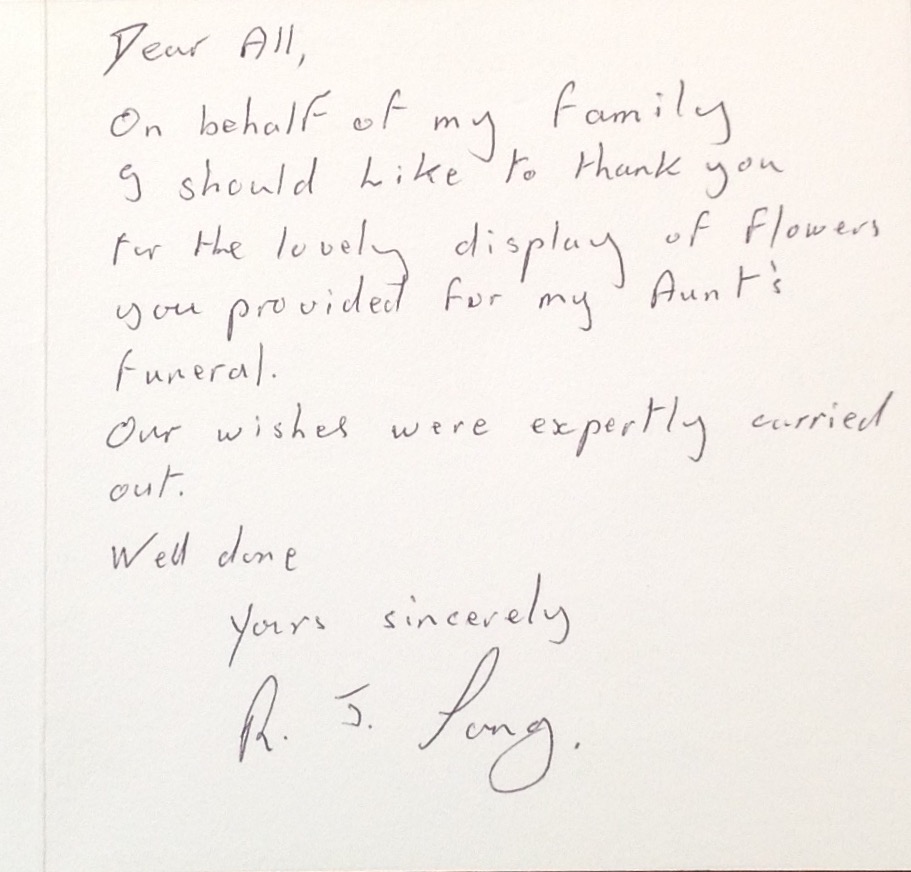 Dear All,
On behalf of my family
I should like to thank you
for the lovely display of flowers
you provided for my Aunt's
funeral.
Our wishes were expertly carried
out.
Well done
Yours sincerely
R. J. Long.